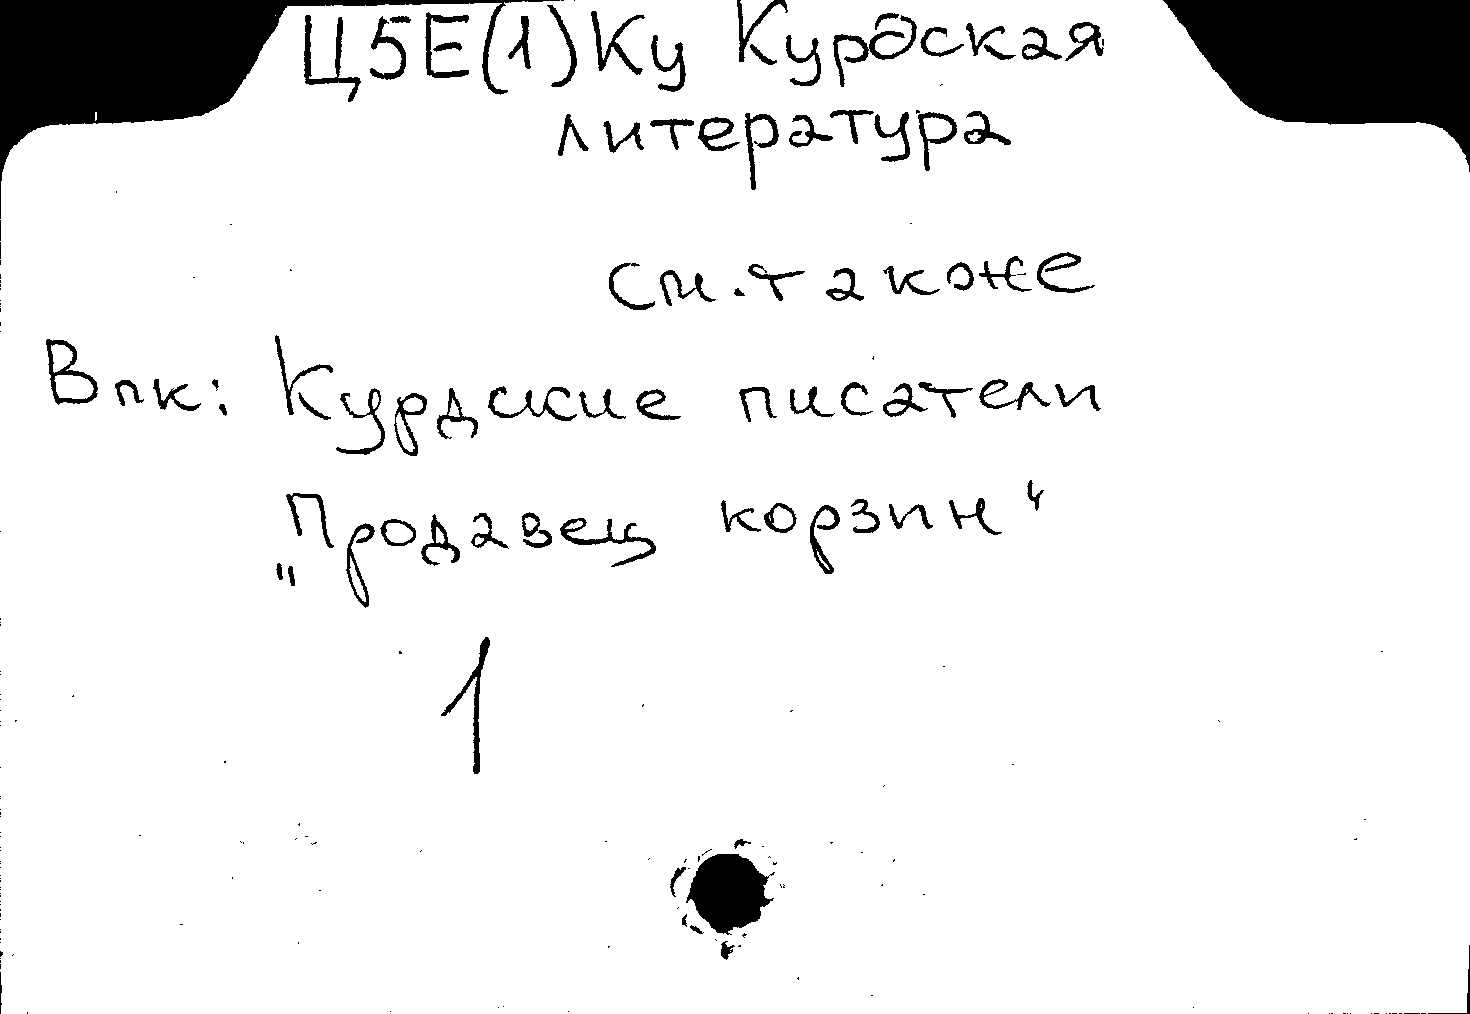 Ц5Е(1)Ку Курдская
литература
см. также
В пк: Курдские писатели
„Продавец корзин“
1